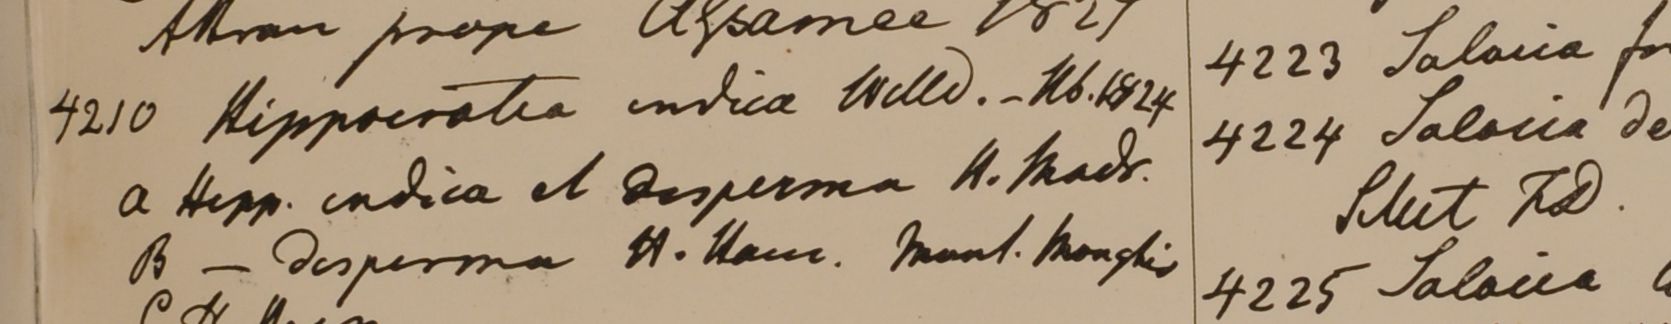 Attran prope 1827
4210 Hippocratea indica Willd. - Hb. 1824
a Hepp. indica et disperma H. Madr.
B — disperma H. Ham. Mont. Monghir
C H. Ham
4223 Salacia
4224 Salacia de
F.D.
4225 Salacia